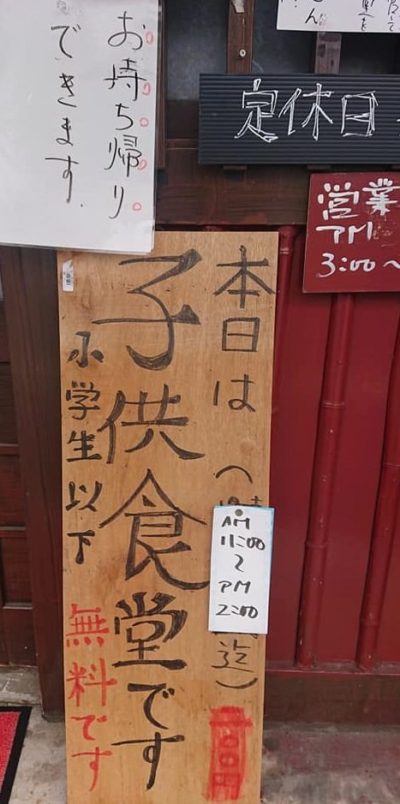 お持ち帰り
できます.
定休日
営業
PM
3:00〜
本日は(
AM
11:00
〜
PM
2:00
迄)
子供食堂です
小学生以下
無料です